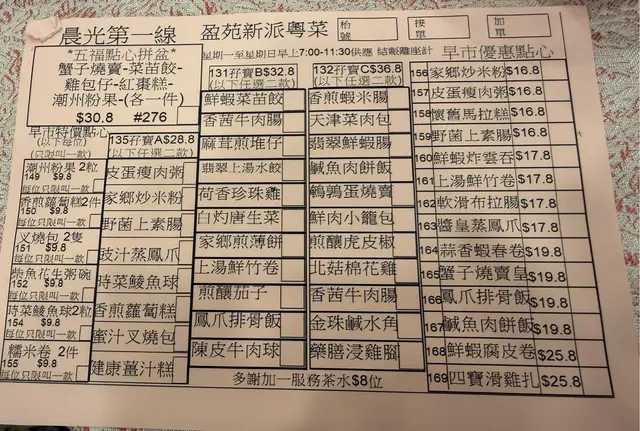 晨光第一線
盈苑新派粵菜
枱號
接單
加單
星期一至星期日早上7:00-11:30供應 結帳離座計
*五福點心拼盆*
蟹子燒賣-菜苗餃-
雞包仔-紅棗糕-
潮州粉果-(各一件)
$30.8 #276
早市特價點心
(以下每位)
(只限叫一款)
潮州粉果 2粒
149 $9.8
每位只限叫一款
香煎蘿蔔糕2件
150 $9.8
每位只限叫一款
叉燒包 2隻
151 $9.8
每位只限叫一款
柴魚花生粥 碗
152 $9.8
每位只限叫一款
時菜鯪魚球2粒
154 $9.8
每位只限叫一款
糯米卷 2件
155 $9.8
每位只限叫一款
135孖寶A$28.8
(以下任選二款)
皮蛋瘦肉粥
家鄉炒米粉
野菌上素腸
豉汁蒸鳳爪
時菜鯪魚球
香煎蘿蔔糕
蜜汁叉燒包
健康薑汁糕
131孖寶B$32.8
(以下任選二款)
鮮蝦菜苗餃
香茜牛肉腸
麻茸煎堆仔
翡翠上湯水餃
荷香珍珠雞
白灼唐生菜
家鄉煎薄餅
上湯鮮竹卷
煎釀茄子
鳳爪排骨飯
陳皮牛肉球
132孖寶C$36.8
(以下任選二款)
香煎蝦米腸
天津菜肉包
翡翠鮮蝦腸
鹹魚肉餅飯
鵪鶉蛋燒賣
鮮肉小籠包
煎釀虎皮椒
北菇棉花雞
香茜牛肉腸
金珠鹹水角
藥膳浸雞腳
早市優惠點心
156 家鄉炒米粉 $16.8
157 皮蛋瘦肉粥 $16.8
158 懷舊馬拉糕 $16.8
159 野菌上素腸 $16.8
160 鮮蝦炸雲吞 $17.8
161 上湯鮮竹卷 $17.8
162 軟滑布拉腸 $17.8
163 醬皇蒸鳳爪 $17.8
164 蒜香蝦春卷 $19.8
165 蟹子燒賣皇 $19.8
166 鳳爪排骨飯 $19.8
167 鹹魚肉餅飯 $19.8
168 鮮蝦腐皮卷 $25.8
169 四寶滑雞扎 $25.8
多謝加一服務茶水$8位